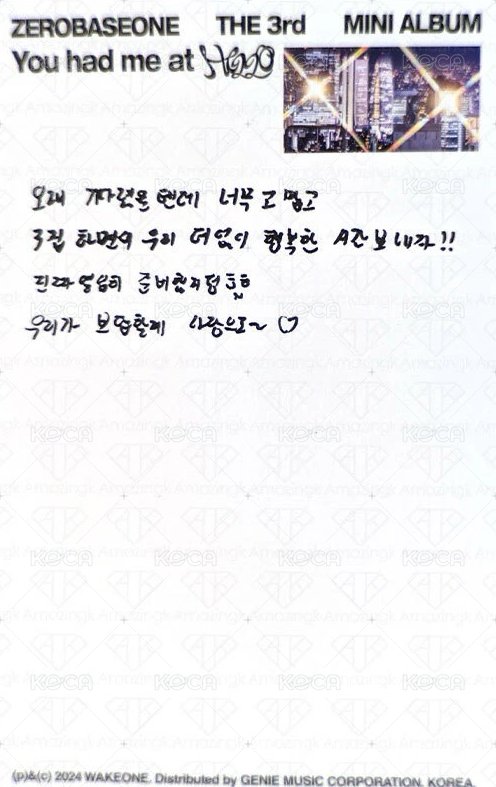 ZEROBASEONE THE 3rd MINI ALBUM
You had me at Hello
오래 기다렸을텐데 너무 고맙고
3집 하면서 우리 더없이 행복한 시간 보내자!!
진짜 열심히 준비했지
우리가 보답할게 사랑으로~ ♡
KOCA
Amazingk
(p)&(c) 2024 WAKEONE. Distributed by GENIE MUSIC CORPORATION. KOREA.